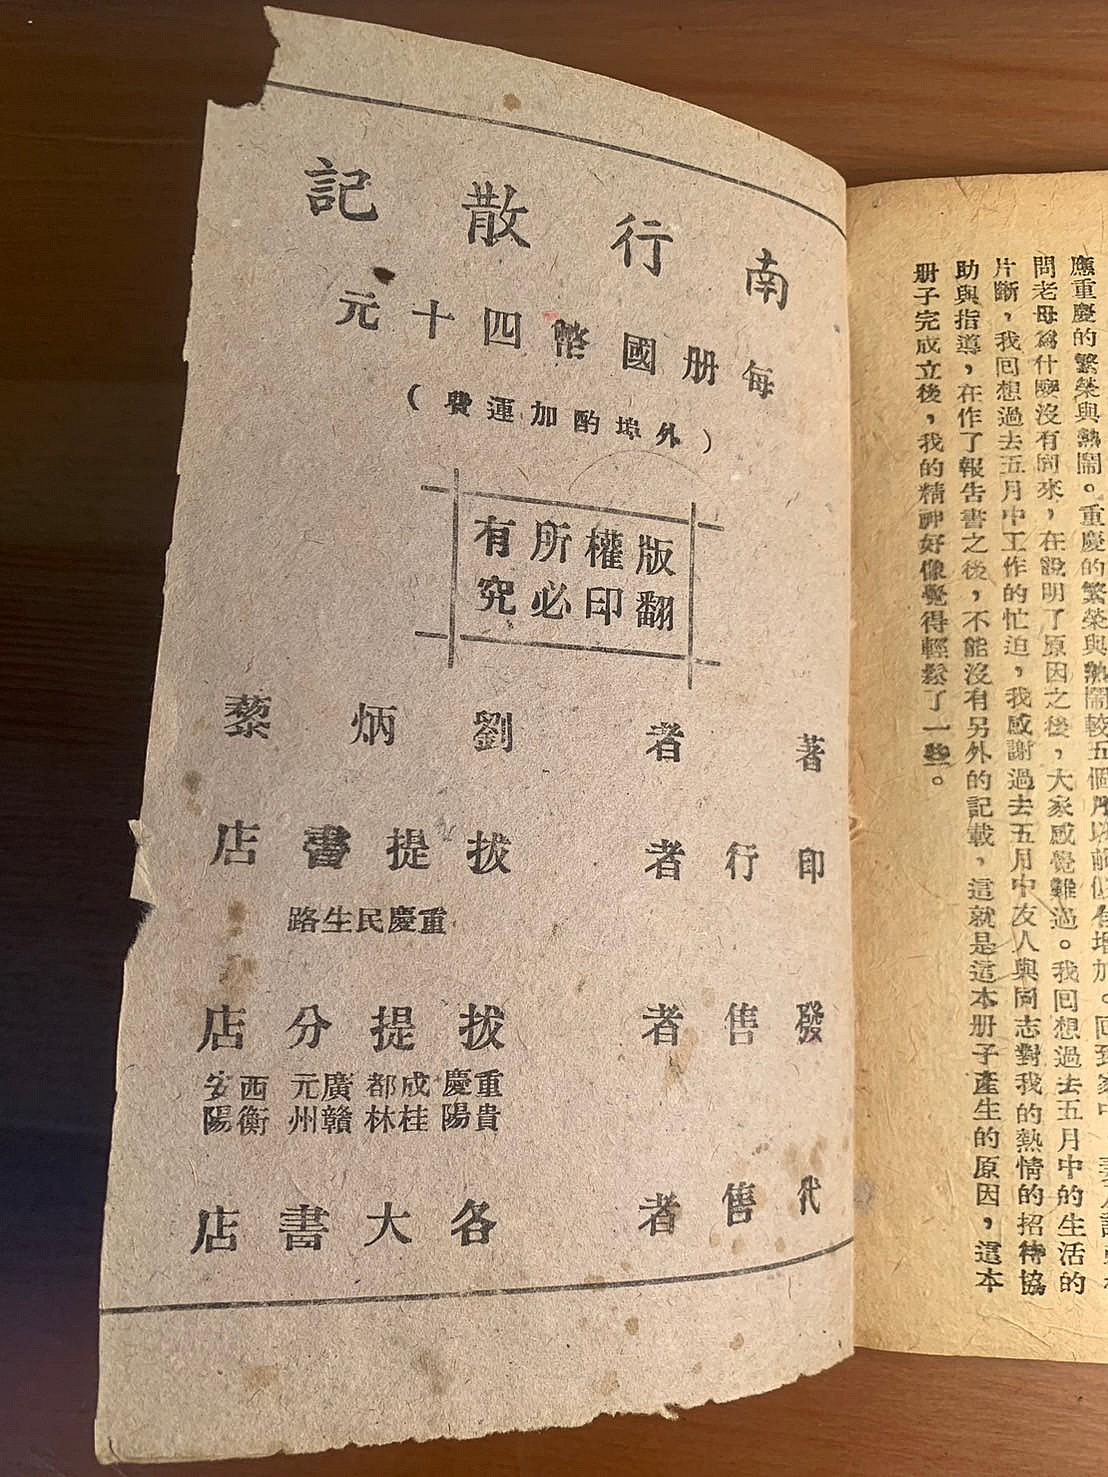 南行散記
每册國幣四十元
(外埠酌加運費)
版權所有
翻印必究
著者 劉炳藜
印行者 拔提書店
重慶民生路
發售者 拔提分店
重慶 成都 廣元 西安
貴陽 桂林 贛州 衡陽
代售者 各大書店
應重慶的繁榮與熱鬧。重慶的繁榮與熱鬧較五個月以前
問老母爲什麼沒有同來,在說明了原因之後,大家感覺難過。我回想過去五月中的生活的
片斷,我回想過去五月中工作的忙迫,我感謝過去五月中友人與同志對我的熱情的招待協
助與指導,在作了報告書之後,不能沒有另外的記載,這就是這本册子產生的原因,這本
册子完成立後,我的精神好像覺得輕鬆了一些。